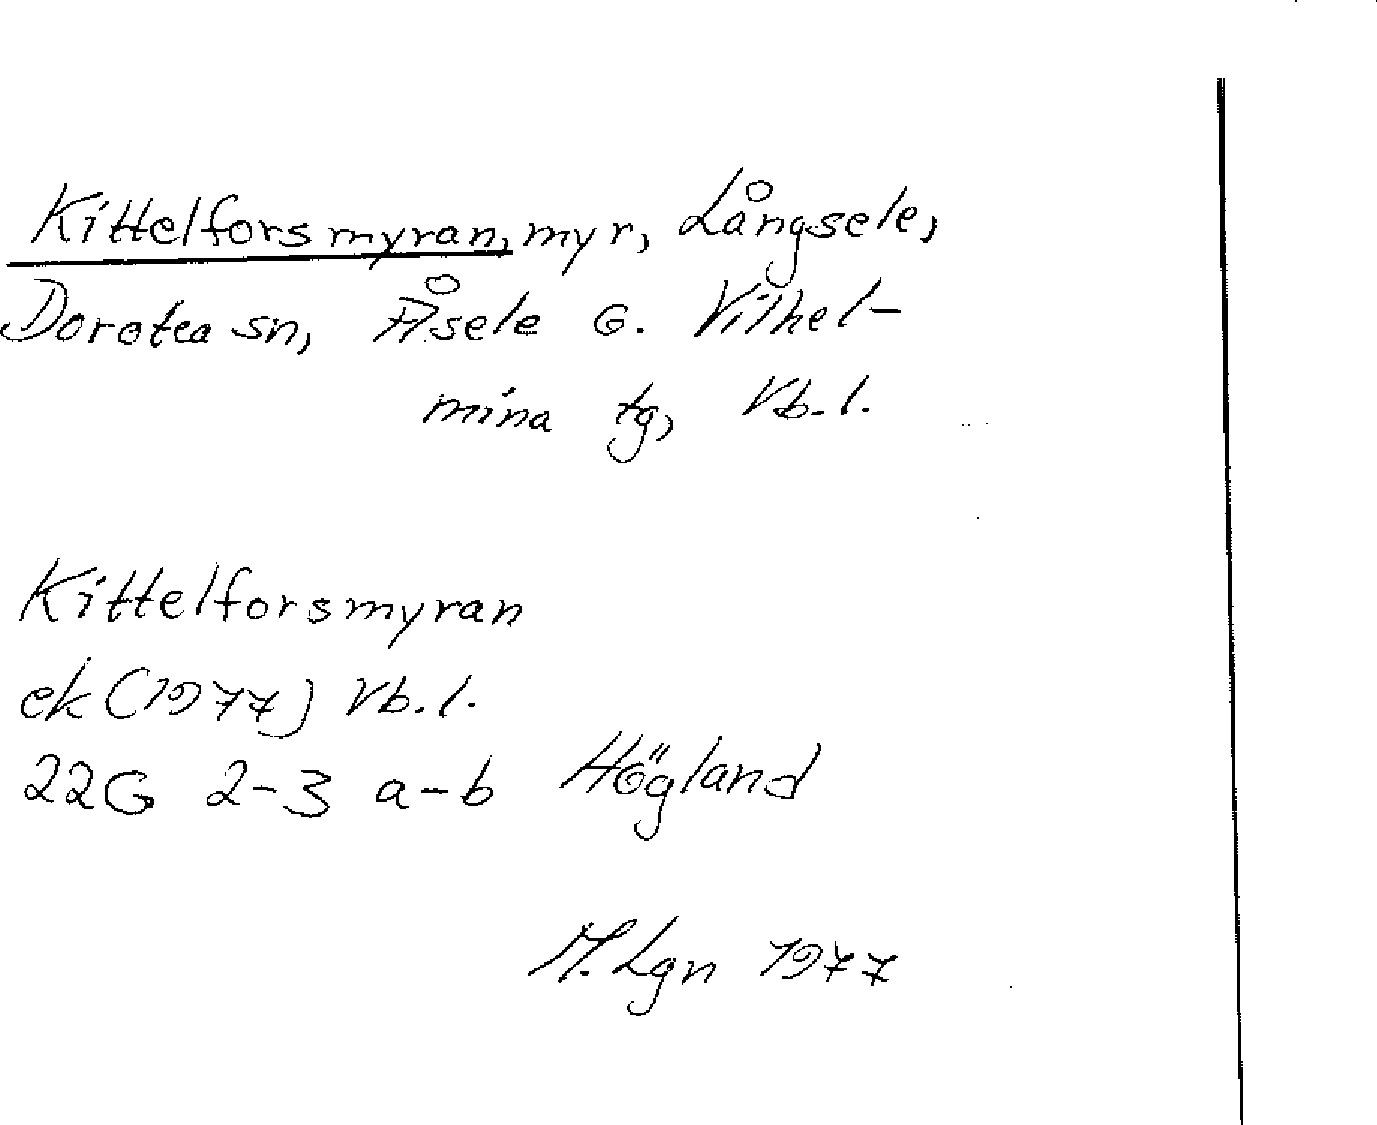 Kittelforsmyran, myr, Långsele,
Dorotea sn, Åsele o. Vilhel-
mina tg, Vb. l.
Kittelforsmyran
ek (1977) Vb. l.
22G 2-3 a-b Högland
M. Lgn 1977